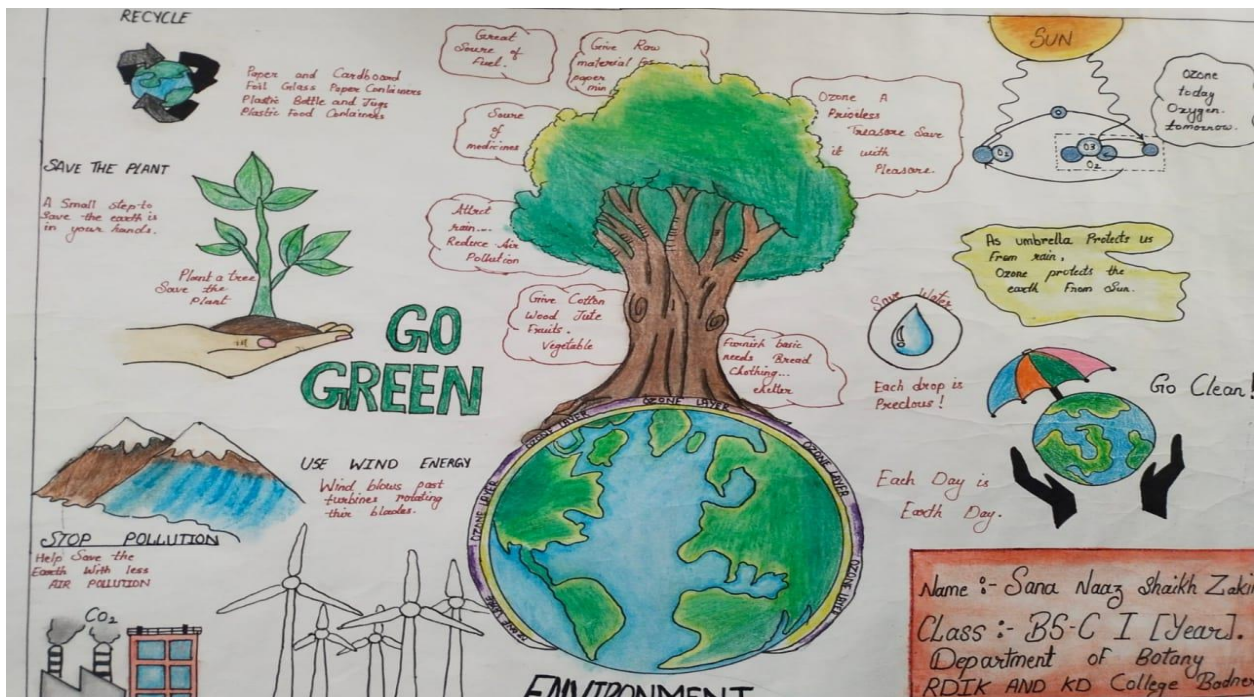 RECYCLE
Paper and Cardboard
Foil Glass Paper Containers
Plastic Bottle and Jugs
Plastic Food Containers
SAVE THE PLANT
A Small step to
Save the earth is
in your hands.
Plant a tree
Save the
Plant
GO
GREEN
USE WIND ENERGY
Wind blows past
turbines rotating
thir blades.
STOP POLLUTION
Help Save the
Earth With less
AIR POLLUTION
CO2
Great
Soure of
Fuel.
Give Raw
material for
paper
min
Soure
of
medicines
Attrct
rain...
Reduce Air
Pollution
Give Cotton
Wood Jute
Fruits.
Vegetable
Ozone A
Priceless
Treasure Save
it with
Pleasure.
Furnish basic
needs Bread
Clothing...
OZONE LAYER
OZONE LAYER
OZONE LAYER
OZONE LAYER
OZONE LAYER
OZONE LAYER
ENVIRONMENT
SUN
O
O2
O3
O2
Ozone
today
Oxygen
tomorrow.
As umbrella Protects us
From rain,
Ozone protects the
earth From Sun.
Save Water
Each drop is
Precious!
Go Clean!
Each Day is
Earth Day.
Name :- Sana Naaz Shaikh Zakir
Class :- BS-C I [Year].
Department of Botany
RDIK AND KD College Badner